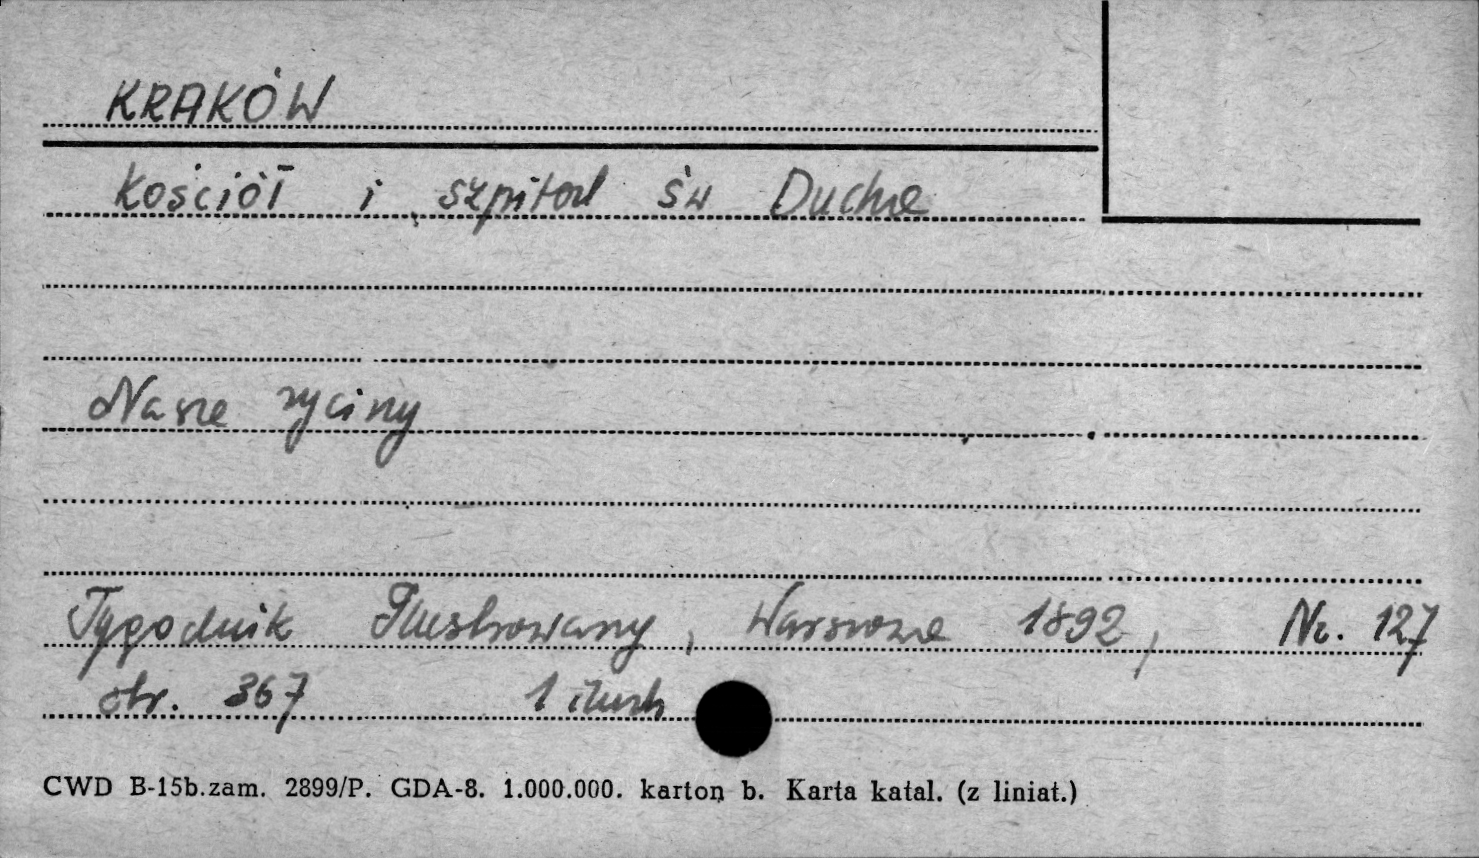 KRAKÓW
Kościół i szpital św Ducha
Nasze ryciny
Tygodnik Ilustrowany, Warszawa 1892, Nr. 127
str. 367 1 ilustr
CWD B-15b.zam. 2899/P. GDA-8. 1.000.000. karton b. Karta katal. (z liniat.)